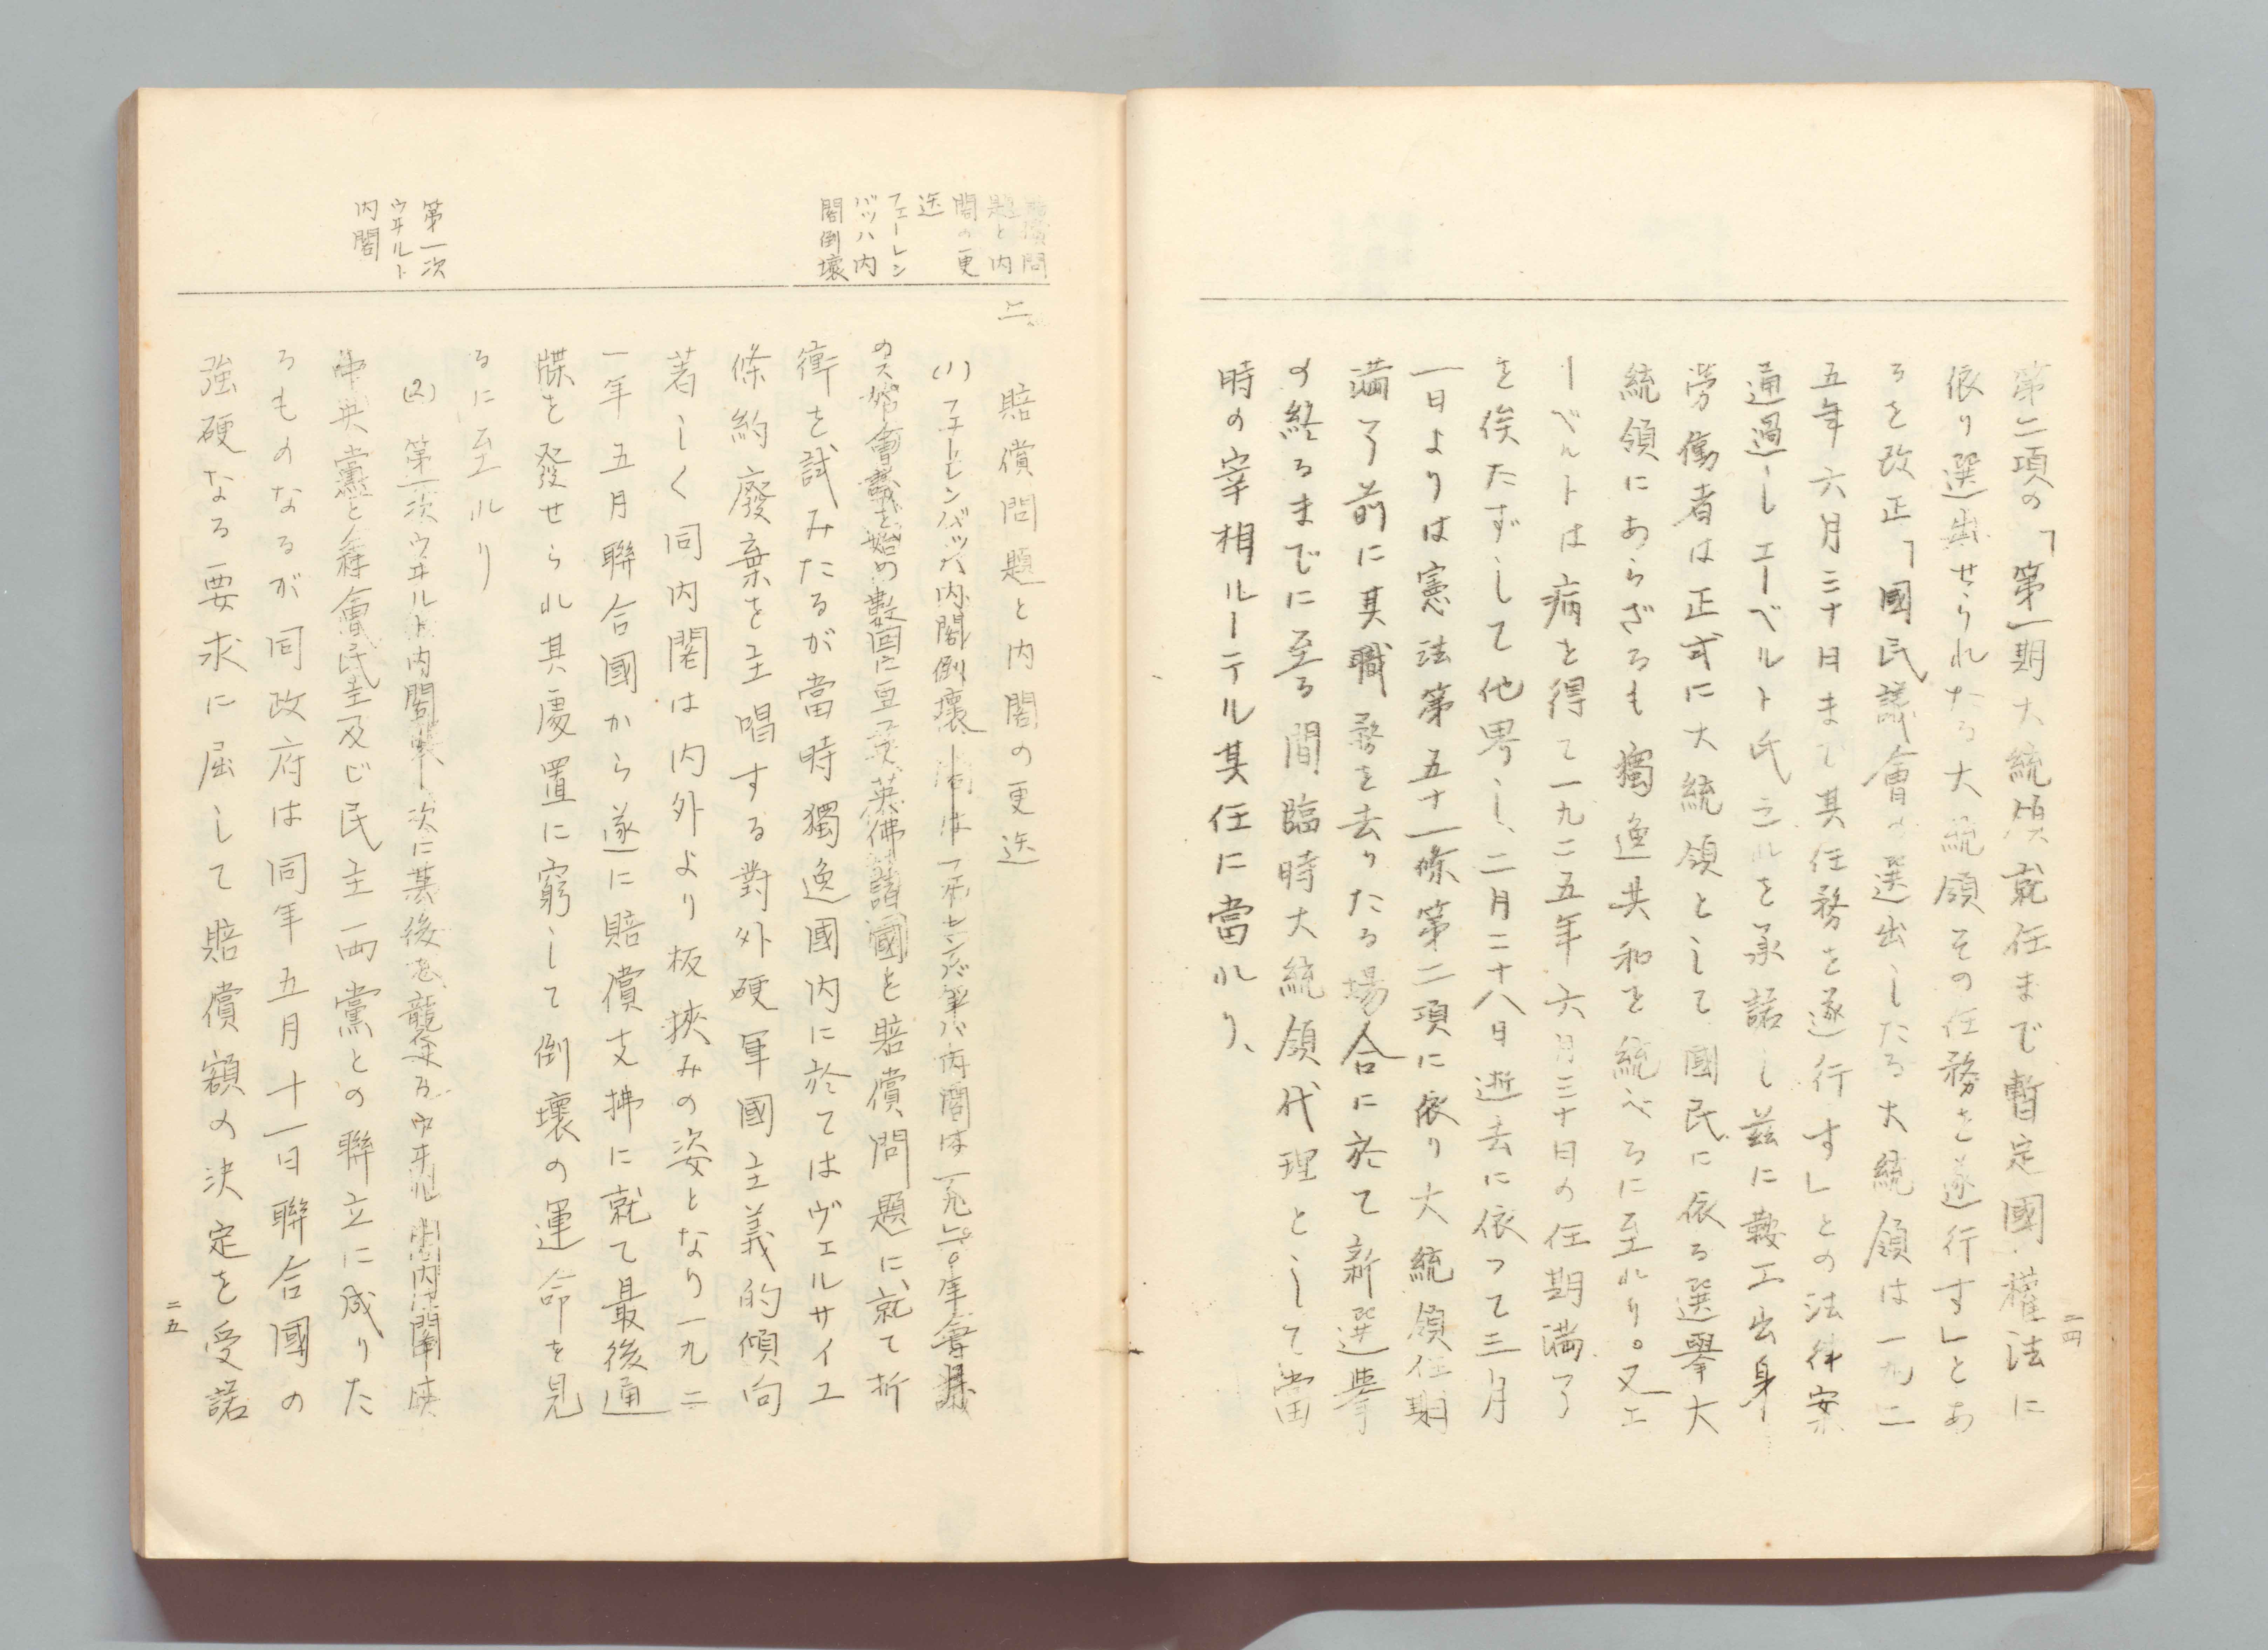 二四
第二項の「第一期大統領就任まで暫定國權法に
依り選出せられたる大統領その任務を遂行す」とあ
るを改正「國民議會の選出したる大統領は一九二
五年六月三十日まで其任務を遂行す」との法律案
通過しエーベルト氏之れを承諾し茲に鞍工出身
勞働者は正式に大統領として國民に依る選擧大
統領にあらざるも獨逸共和を統べるに至れり。又エ
ーベルトは病を得て一九二五年六月三十日の任期滿了
を俟たずして他界し、二月二十八日逝去に依つて三月
一日よりは憲法第五十一條第二項に依り大統領任期
滿了前に其職務を去りたる場合に於て新選擧
の終るまでに至る間臨時大統領代理として當
時の宰相ルーテル其任に當れり、
賠償問
題と内
閣の更
迭
フェーレン
バッハ内
閣倒壞
二、賠償問題と内閣の更迭
(1)フェーレンバッハ内閣倒壞
會議を始め數回に亘英佛諸國と賠償問題に就て折
衝を試みたるが當時獨逸國内に於てはヴェルサイユ
條約廢棄を主唱する對外硬軍國主義的傾向
著しく同内閣は内外より板挾みの姿となり一九二
一年五月聯合國から遂に賠償支拂に就て最後通
牒を發せられ其處置に窮して倒壞の運命を見
るに至れり
第一次
ウヰルト
内閣
(2)第一次ウヰルト内閣 次に其後を襲
中央黨と 民主及び民主一兩黨との聯立に成りた
るものなるが同政府は同年五月十一日聯合國の
強硬なる要求に屈して賠償額の決定を受諾
二五